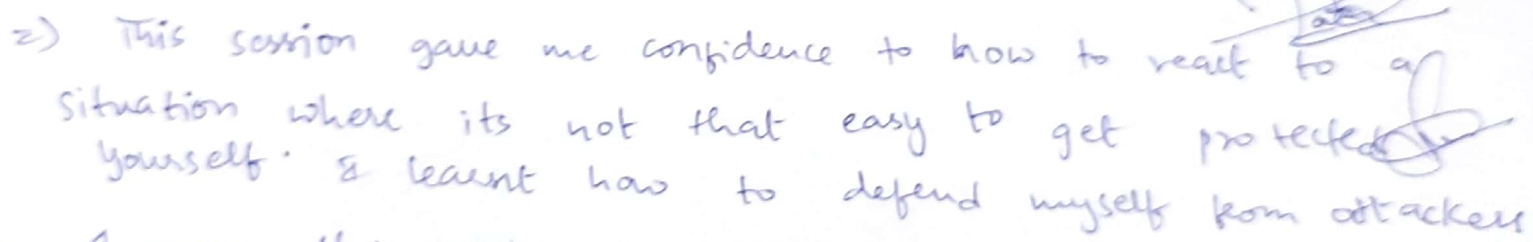 2) This session gave me confidence to how to react to a
situation where its not that easy to get protected
yourself. & learnt how to defend myself from attackers